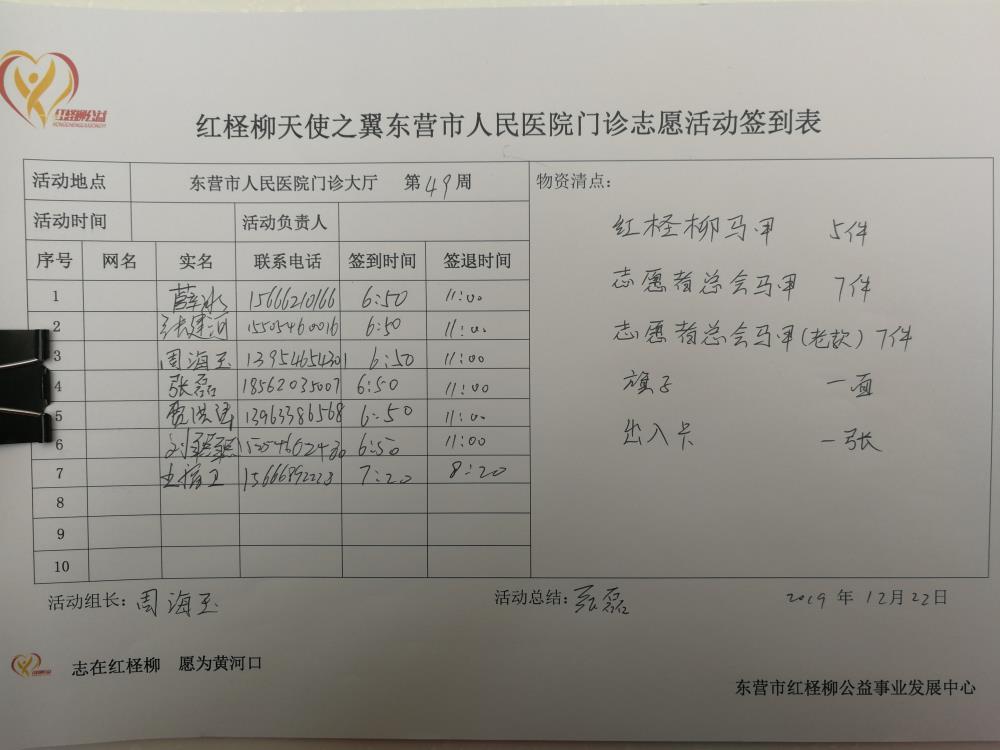 红柽柳公益
红柽柳天使之翼东营市人民医院门诊志愿活动签到表
活动地点 东营市人民医院门诊大厅 第49周
活动时间 活动负责人
序号 网名 实名 联系电话 签到时间 签退时间
1 薛冰 15666210166 6:50 11:00
2 张建河 15505460016 6:50 11:00
3 周海玉 13954654301 6:50 11:00
4 张磊 18562035007 6:50 11:00
5 贾洪涛 13963386568 6:50 11:00
6 6:50 11:00
7 15666892223 7:20 8:20
8
9
10
物资清点：
红柽柳马甲 5件
志愿者总会马甲 7件
志愿者总会马甲(老款) 7件
旗子 一面
出入卡 一张
活动组长：周海玉 活动总结：张磊 2019年12月22日
志在红柽柳 愿为黄河口
东营市红柽柳公益事业发展中心